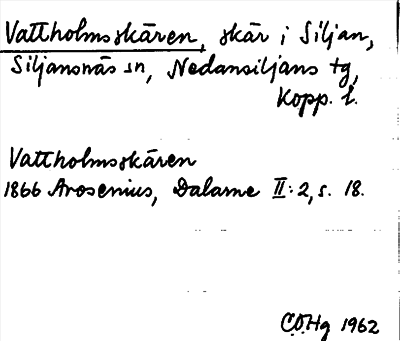 Vattholmsskären, skär i Siljan,
Siljansnäs sn, Nedansiljans tg,
Kopp. l.
Vattholmsskären
1866 Arosenius, Dalarne II:2, s. 18.
C.O.Hg 1962